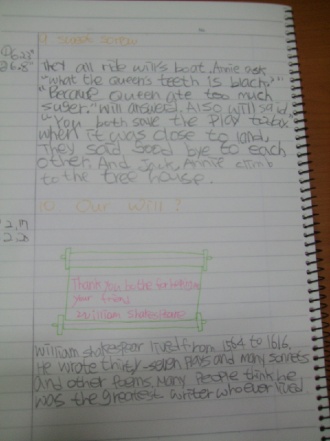 They all ride will's boat. Annie ask
"what the queen's teeth is black?"
"Because queen ate too much
suger." will answerd. Also will said
"You both save the play today"
when it was close to land,
They said good bye to each
other. And Jack, Annie climb
to the tree house.
10. Our Will?
Thank you both for
your friend
William Shakespeare
William Shakespear lived from 1564 to 1616.
He wrote thirty-seven Plays and Many sonnets
And other Poems. Many People think he
was the greatest writer who ever lived